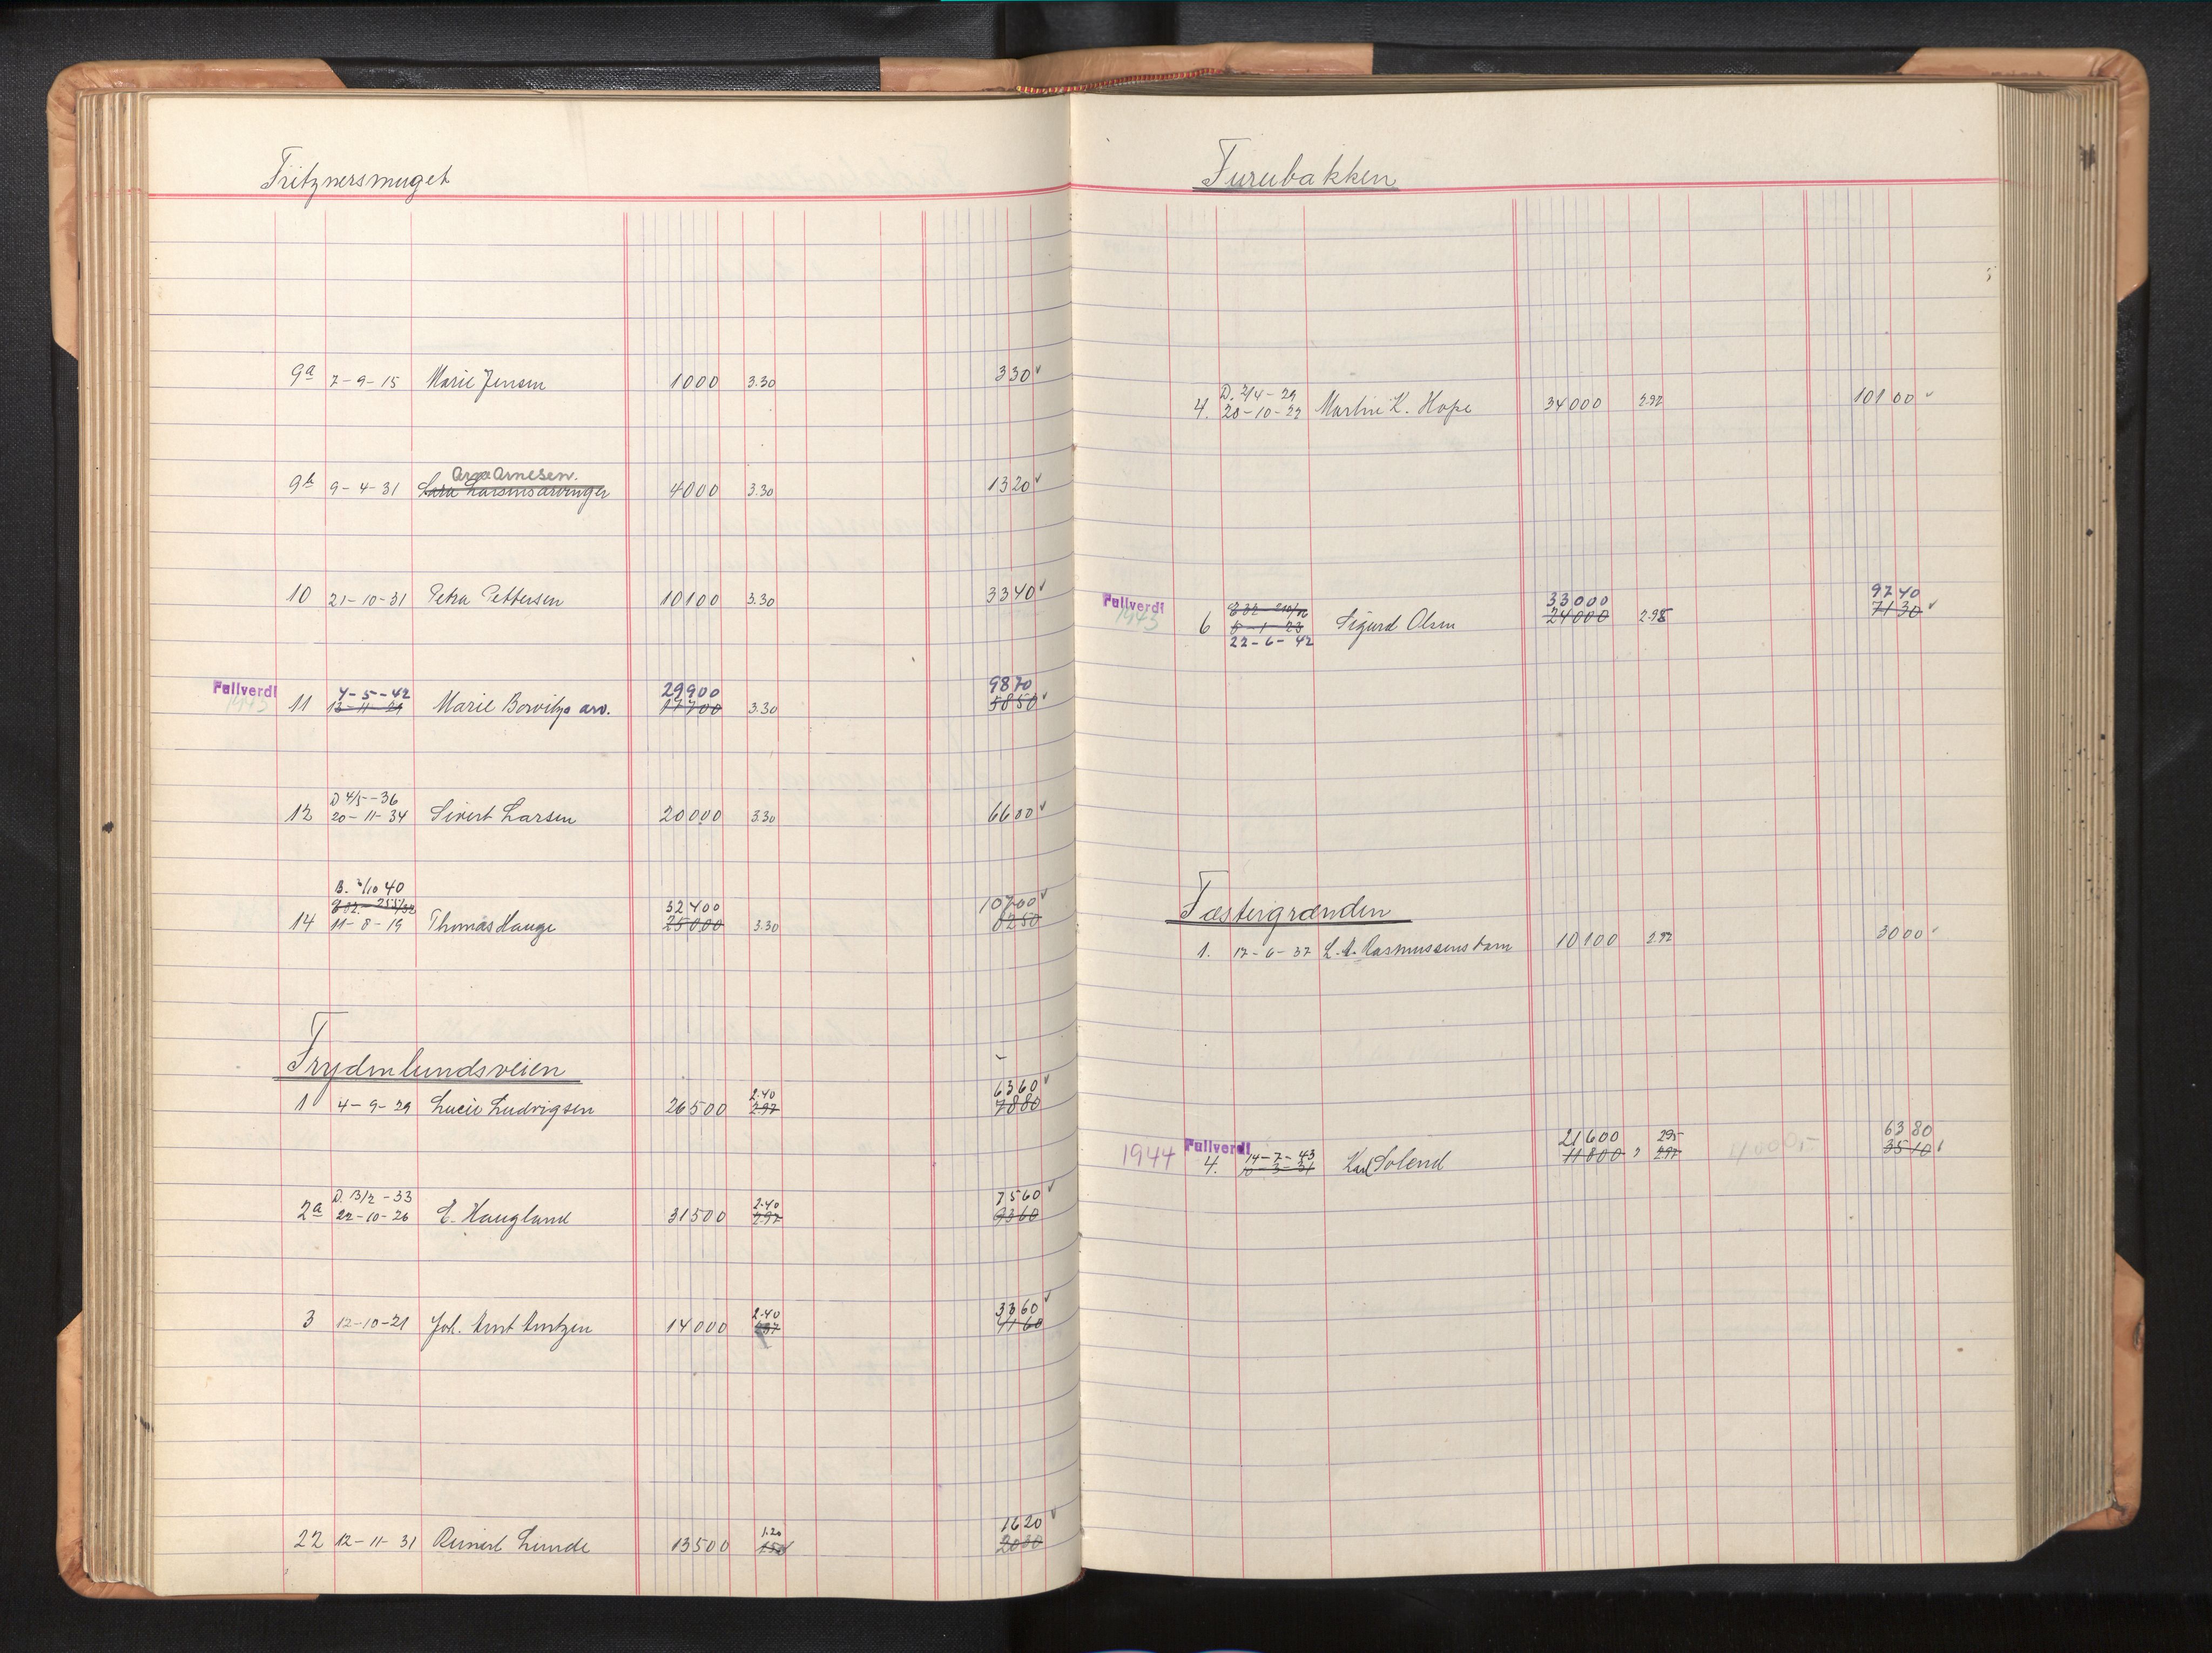 Fritznersmuget
9a 7-9-15 Marie Jensen 1000 3.30 330 ✓
Arnesen.
9b 9-4-31 4000 3.30 1320 ✓
10 21-10-31 Petra Pettersen 10100 3.30 3340 ✓
Fullverdi 4-5-42 29900 9870
1943 11 13-11-29 Marie arv. 17700 3.30 5850 ✓
D 4/5-36
12 20-11-34 Sivert Larsen 20000 3.30 6600 ✓
B. /10 40
32400 10700 ✓
14 11-8-19 Thomas Hauge 25000 3.30 8250
Frydenlundsveien
2.40 6360 ✓
1 4-9-29 Lucie Ludvigsen 26500 2.97 7880
D. 13/2-33 2.40 7560 ✓
2a 22-10-26 E. Haugland 31500 2.97 9360
2.40 3360 ✓
3 12-10-21 Joh. 14000 2.97 4160
1.20 1620 ✓
22 12-11-31 Reinert Lunde 13500 1.50 2030
Furubakken
D. 2/4-29
4. 20-10-27 Martin K. Hope 34000 2.97 10100 ✓
Fullverdi 33000 9740
1943 6 5-1-23 Sigurd Olsen 24000 2.95 7130 ✓
22-6-42
Fæstergrænden
1. 17-6-37 Rasmussens 10100 2.97 3000 ✓
Fullverdi 14-7-43 21600 295 6380
1944 4. 10-3-31 Karl Solend 11800 297 4000,- 3510